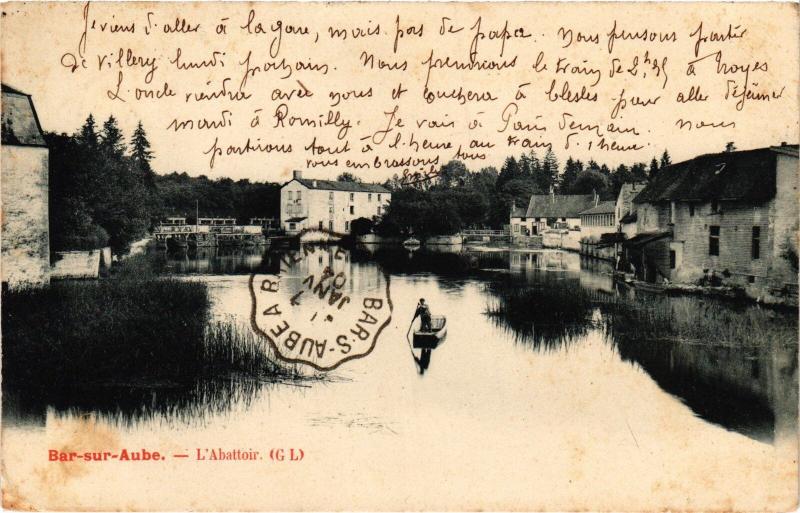 Je viens d'aller à la gare, mais pas de papa. Nous pensons partir
de Villery lundi prochain. Nous prendrons le train de 2h35 à Troyes
L'oncle viendra avec nous et couchera à Blesles pour aller déjeuner
mardi à Romilly. Je vais à Paris demain. Nous
partirons tout à l'heure au train de 1 heure.
vous embrassons tous
BAR-S-AUBE A BRIENNE
7
JANV
04
BAR-S-AUBE
Bar-sur-Aube. — L'Abattoir. (G L)